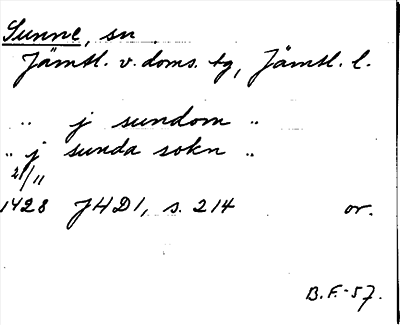 Sunne, sn
Jämtl. v. doms. tg, Jämtl. l.
" j sundom "
" j sunda sokn "
21/11
1428 JHD1, s. 214 or.
B.F.-57.